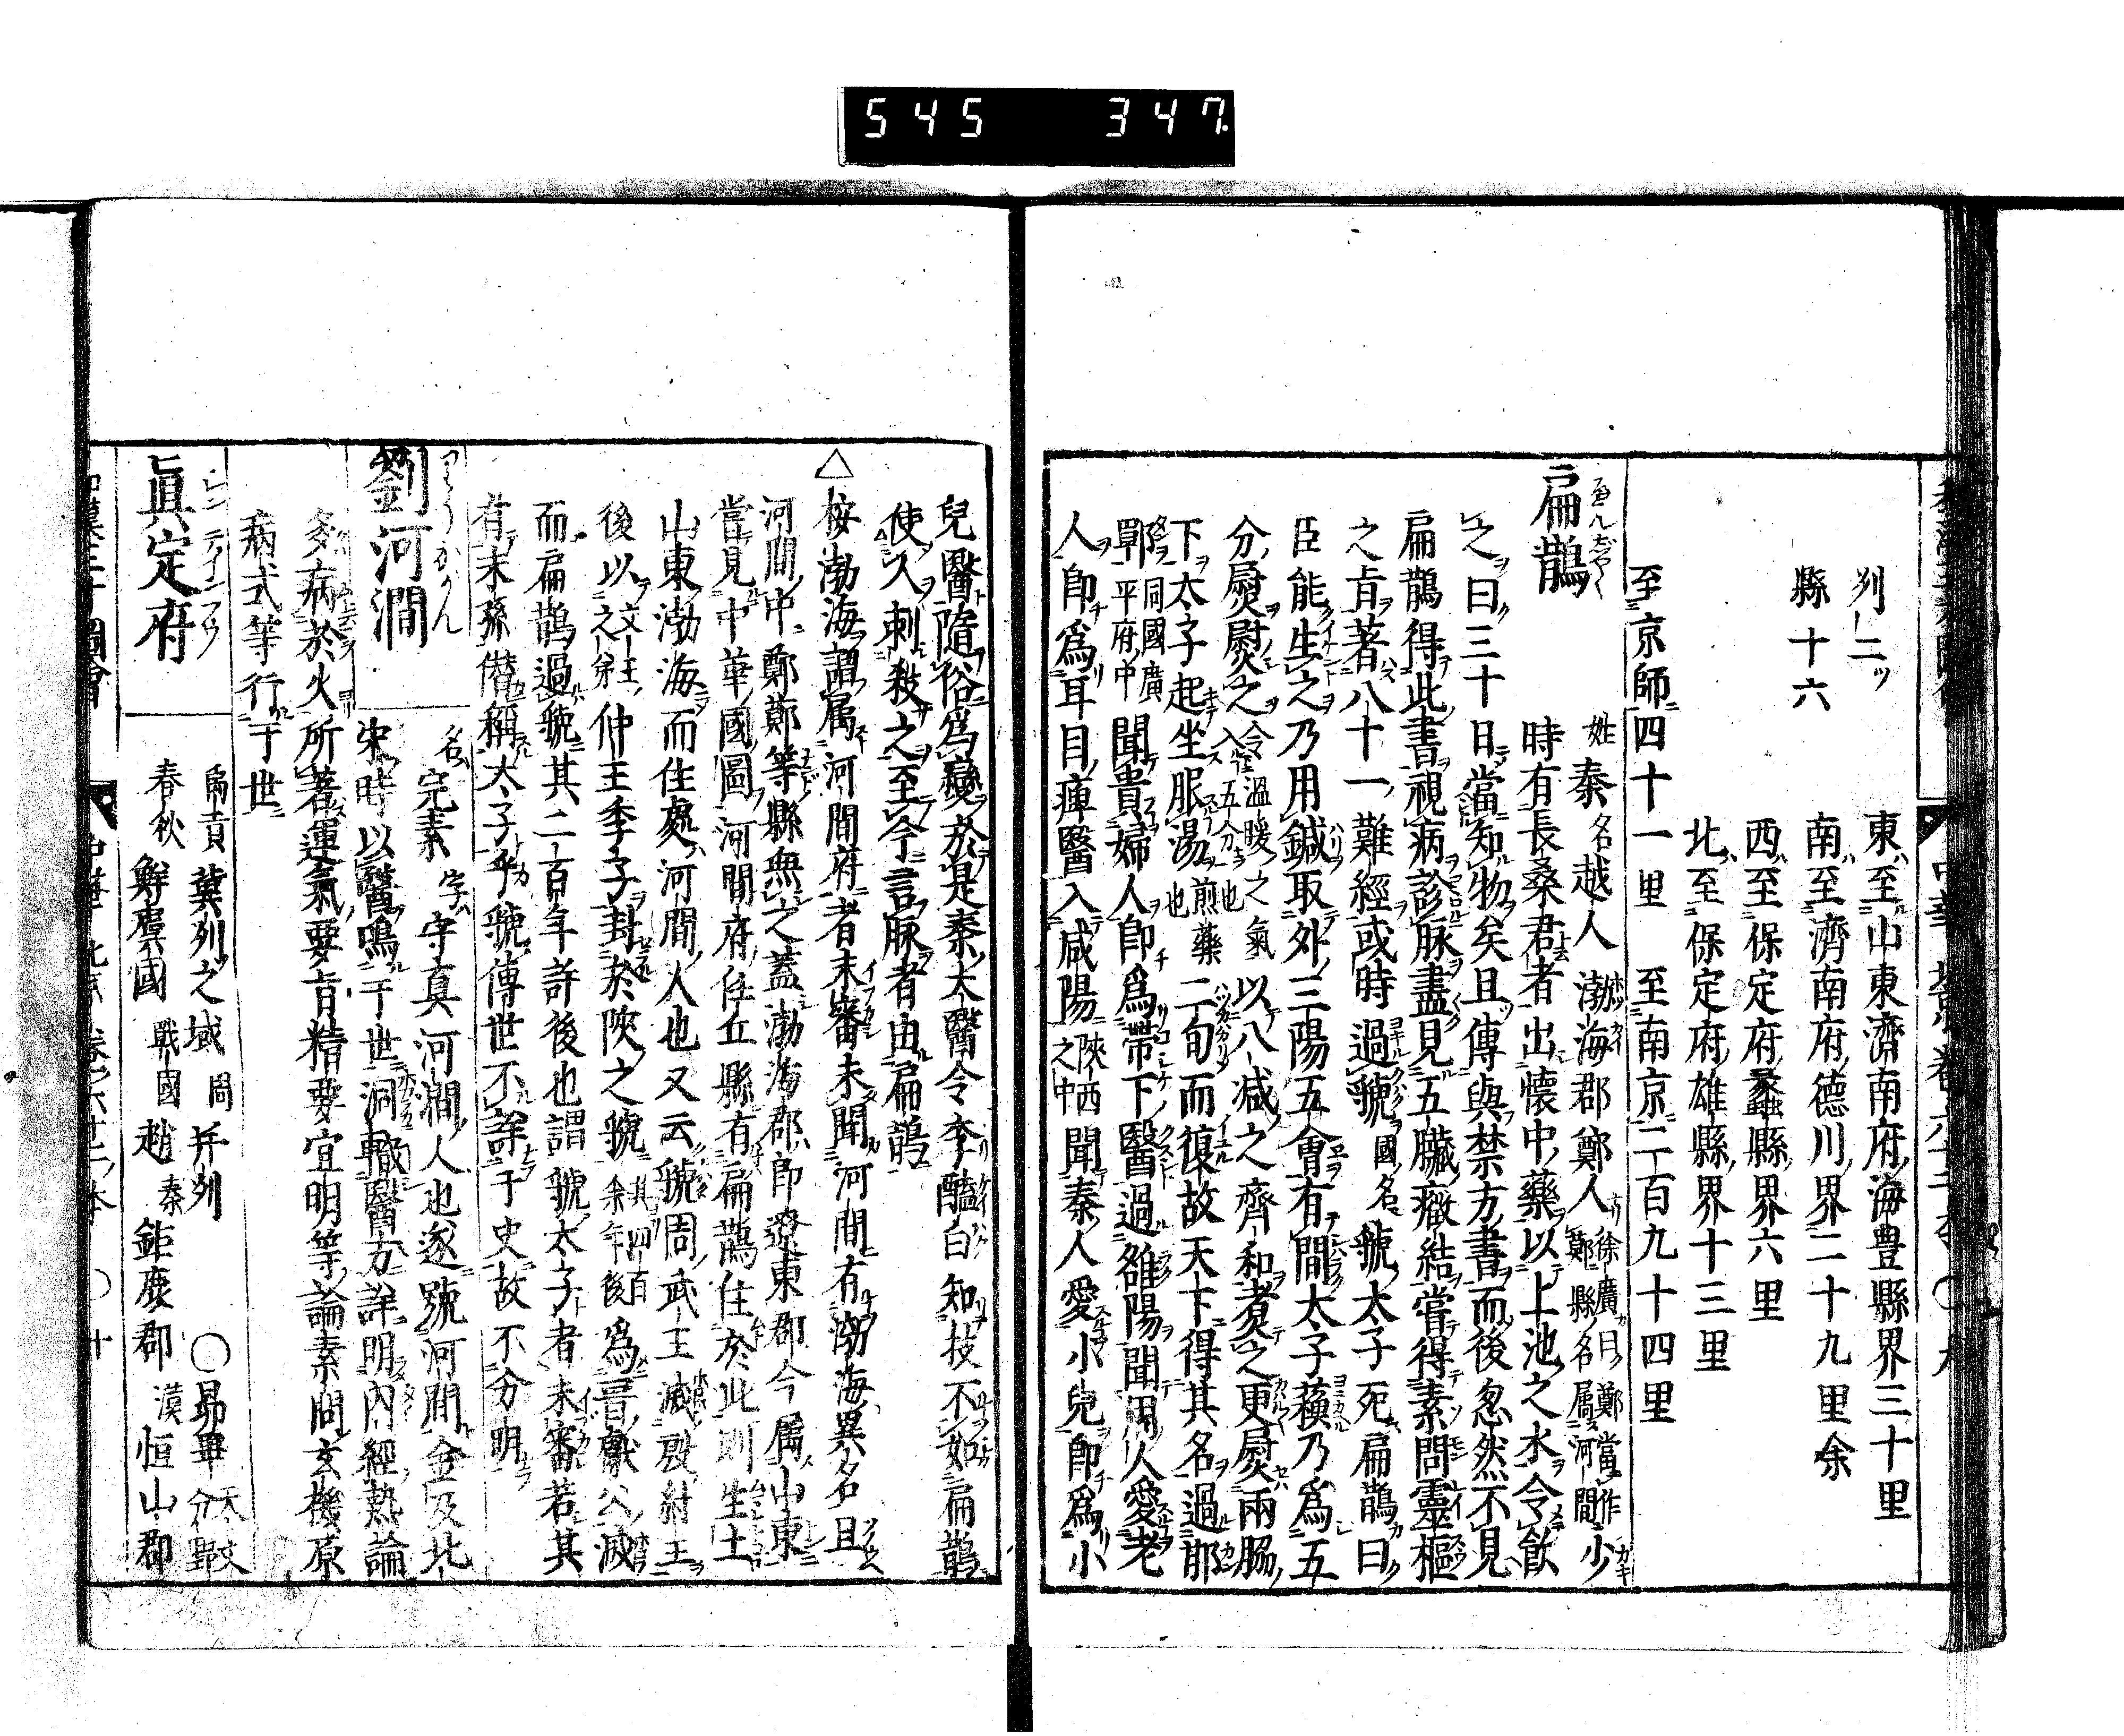 545 347
州二ツ
縣十六
東至山東濟南府海豊縣界三十里
南至濟南府德川界二十九里余
西至保定府蠡縣界六里
北至保定府雄縣界十三里
至京師四十一里 至南京二百九十四里
扁鵲
姓秦名越人 渤海郡鄭人 徐廣曰鄭當作鄚縣名属河間 少
時有長桑君者出懷中藥以上池之水令飲
之曰三十日當知物矣且傳與禁方書而後忽然不見
扁鵲得此書視病診脉盡見五臟癥結嘗得素問靈樞
之㫖著八十一難經或時過虢 國名 虢太子死扁鵲曰
臣能生之乃用鍼取外三陽五會有間太子蘇乃爲五
分熨熨之 令溫暖之氣入五分也 以八減之齊和煑之更熨兩脇
下太子起坐服湯 煎藥也 二旬而復故天下得其名過邯
鄲 同國廣平府中 聞貴婦人卽爲帶下醫過雒陽聞周人愛老
人卽爲耳目痺醫入咸陽 陝西之中 聞秦人愛小兒卽爲小
兒醫隨俗爲變於是秦太醫令李醯自知技不如扁鵲
使人刺殺之至今言脉者由扁鵲
△按渤海謂属河間府者未審未聞河間有渤海異名且
河間中鄭鄚等縣無之蓋渤海郡卽遼東郡今属山東
當見中華國圖河間府任丘縣有扁鵲住於此則生土
山東渤海而住處河間人也又云虢周武王滅殷紂王
後以 文王之弟 仲王季子封於陝之虢 其四百余年後 爲晋獻公滅
而扁鵲過虢其二百年許後也謂虢太子者未審若其
有末孫僣稱太子乎虢傳世不詳于史故不分明
劉河澗
名完素 字守真 河澗人也遂號河間金及北
宋時以醫鳴于世洞徹醫方詳明內經熱論
多病於火所著運氣要㫖精要宣明等論素問玄機原
病式等行于世
眞定府
禹貢冀州之域 周并州 ○昴畢 天文分野
春秋鮮虞國 戰國趙 秦鉅鹿郡 漢恒山郡